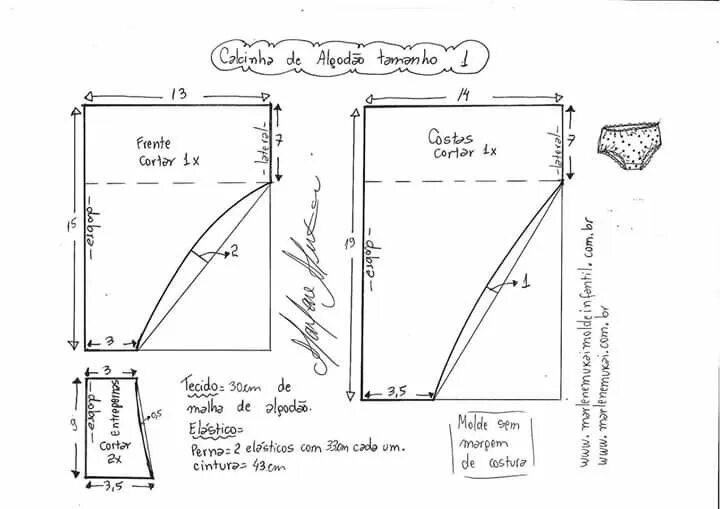 Calcinha de Algodão tamanho 1
13
14
Frente
cortar 1x
- lateral -
7
Costas
cortar 1x
- lateral -
7
15
- dobra -
2
19
- dobra -
1
3
3,5
3
9
- dobra -
Entrepernas
cortar
2x
0,5
3,5
Tecido= 30cm de
malha de algodão.
Elástico=
Perna= 2 elásticos com 33cm cada um.
cintura= 43cm
Molde sem
margem
de costura
www.marlenemukaimoldeinfantil.com.br
www.marlenemukai.com.br